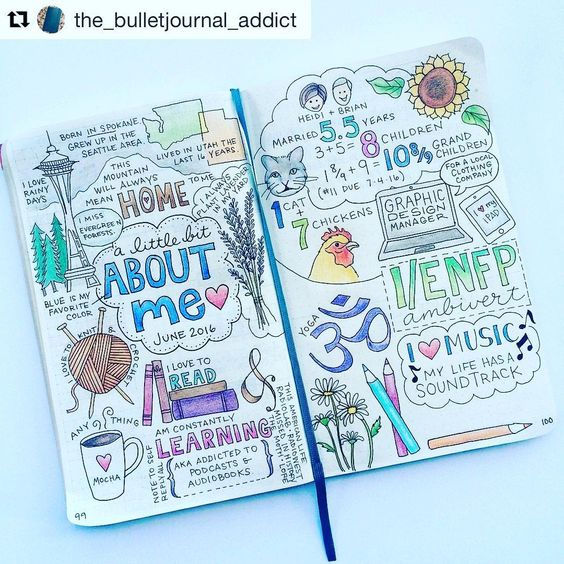 the_bulletjournal_addict
BORN IN SPOKANE
GREW UP IN THE
SEATTLE AREA
LIVED IN UTAH THE
LAST 16 YEARS.
I LOVE
RAINY
DAYS
THIS
MOUNTAIN
WILL ALWAYS
MEAN HOME TO ME
I MISS
EVERGREEN
FORESTS.
I ALWAYS
PLANT LAVENDER
IN MY YARD
a little bit
ABOUT
me
JUNE 2016
BLUE IS MY
FAVORITE
COLOR
I LOVE TO KNIT & CROCHET
I LOVE TO
READ
&
AM CONSTANTLY
LEARNING
AKA ADDICTED TO
PODCASTS &
AUDIOBOOKS
THIS AMERICAN LIFE
RADIOLAB • RADIOWEST
MISSED IN HISTORY
ANYTHING
MOCHA
NOTE TO SELF
REPLY ALL
99
HEIDI + BRIAN
MARRIED 5.5 YEARS
3+5= 8 CHILDREN
GRAND
CHILDREN
(#11 DUE 7.4.16)
1
CAT
+
7 CHICKENS
GRAPHIC
DESIGN
MANAGER
FOR A LOCAL
CLOTHING
COMPANY
I ♥ my
iPAD
I/ENFP
ambivert
YOGA
ॐ
I ♥ MUSIC
MY LIFE HAS A
SOUNDTRACK
100